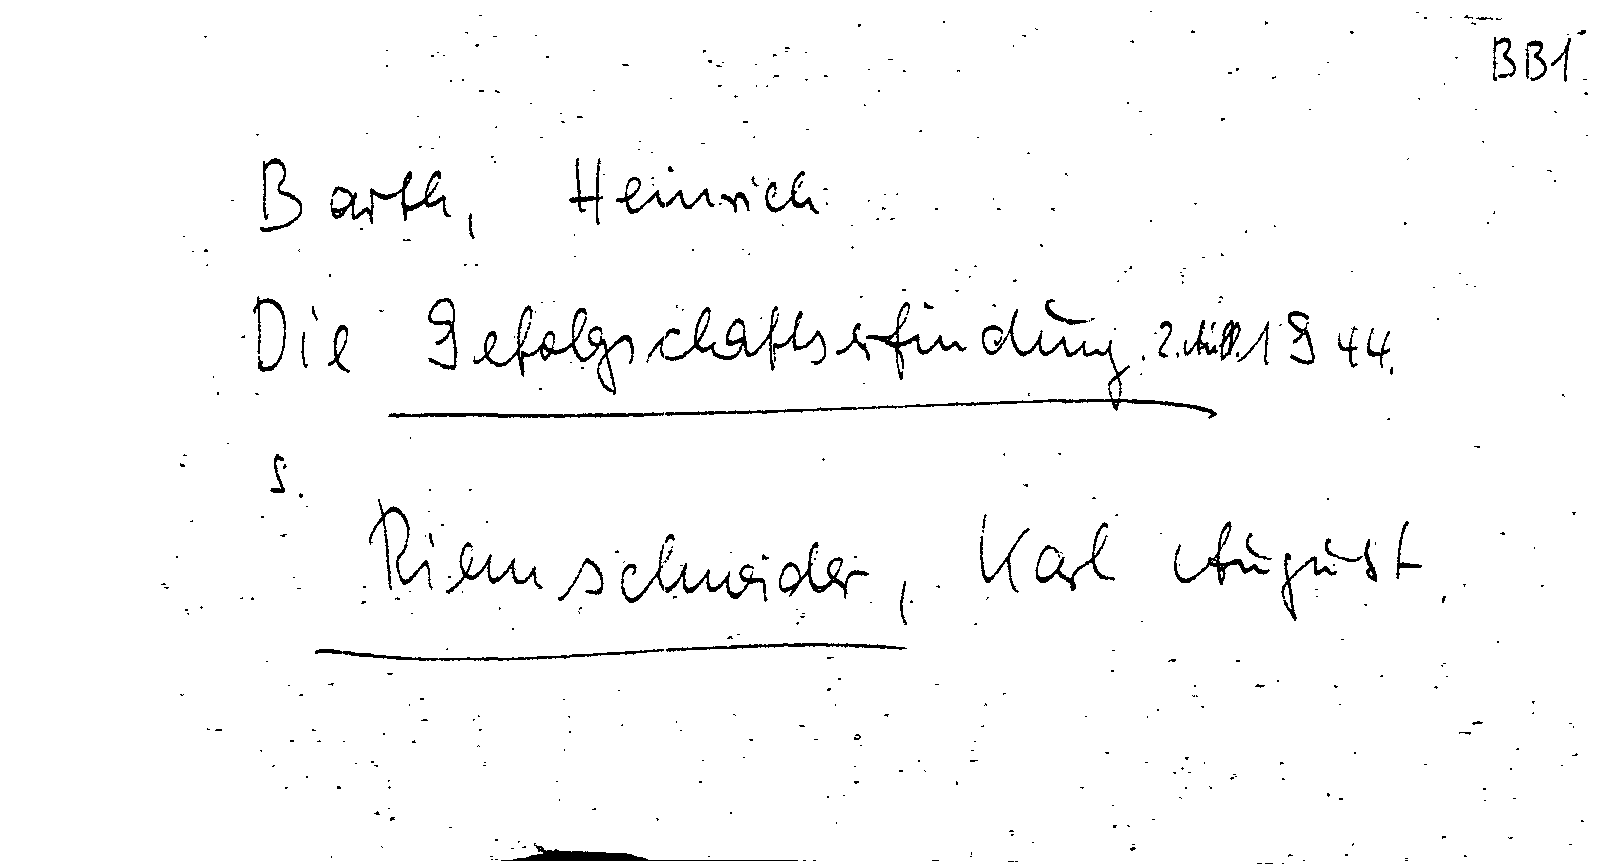 BB1
Barth, Heinrich
Die Gefolgschaftserfindung. 2. Aufl. 1944.
s.
Riemschneider, Karl August